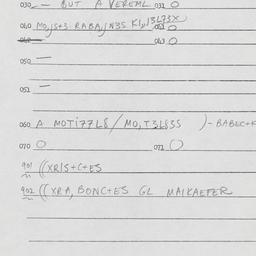 030 — BUT A VEREML 031 O
040 MO,S+3 RABA,N3S KI,13L73X 061 O
042 063 O
050 —
051 —
060 A MOTI77L8 / MO,T3L83S ) - BABEC+K
070 O 071 O
901 ((XRIS+C+ES
902 ((XRA, BONC+ES GL MAIKAEFER